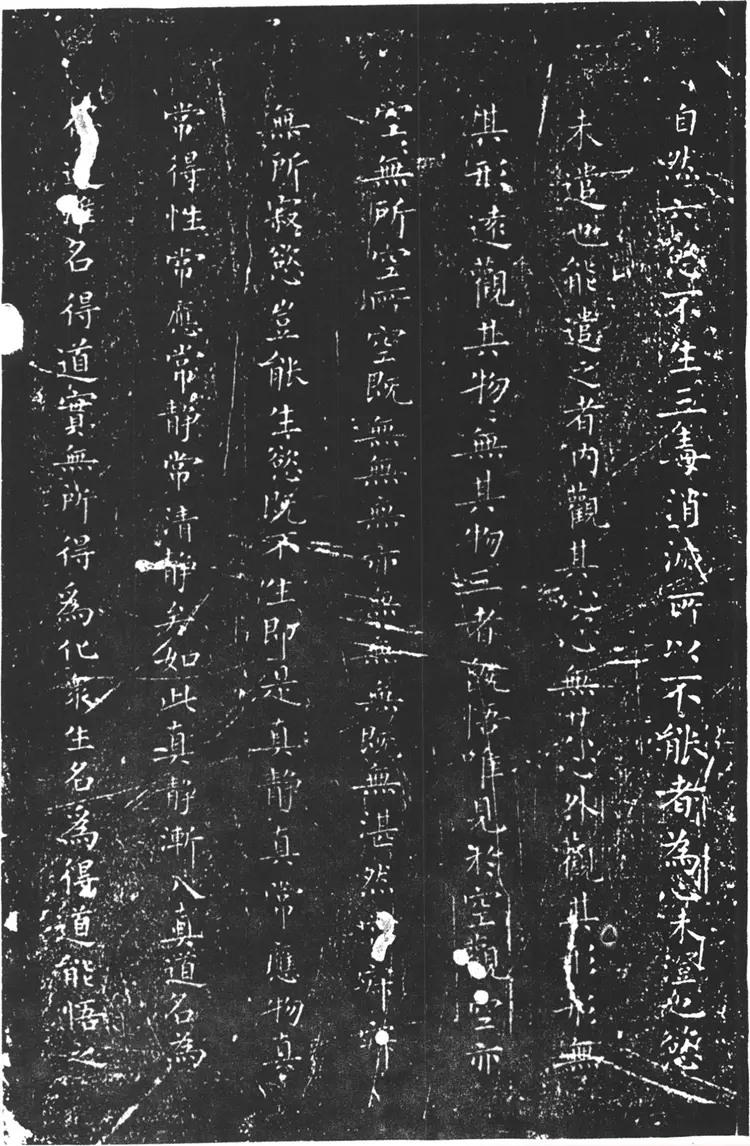 自然六慾不生三毒消滅所以不能者為心未澄也慾
未遣也能遣之者內觀其心心無其心外觀其形形無
其形遠觀其物〻無其物三者既悟唯見於空觀空亦
空〻無所空所空既無無無亦無無無既無湛然常寂寂
無所寂慾豈能生慾既不生即是真静真常應物真
常得性常應常静常清静矣如此真静漸入真道名為
得道雖名得道實無所得為化衆生名為得道能悟之